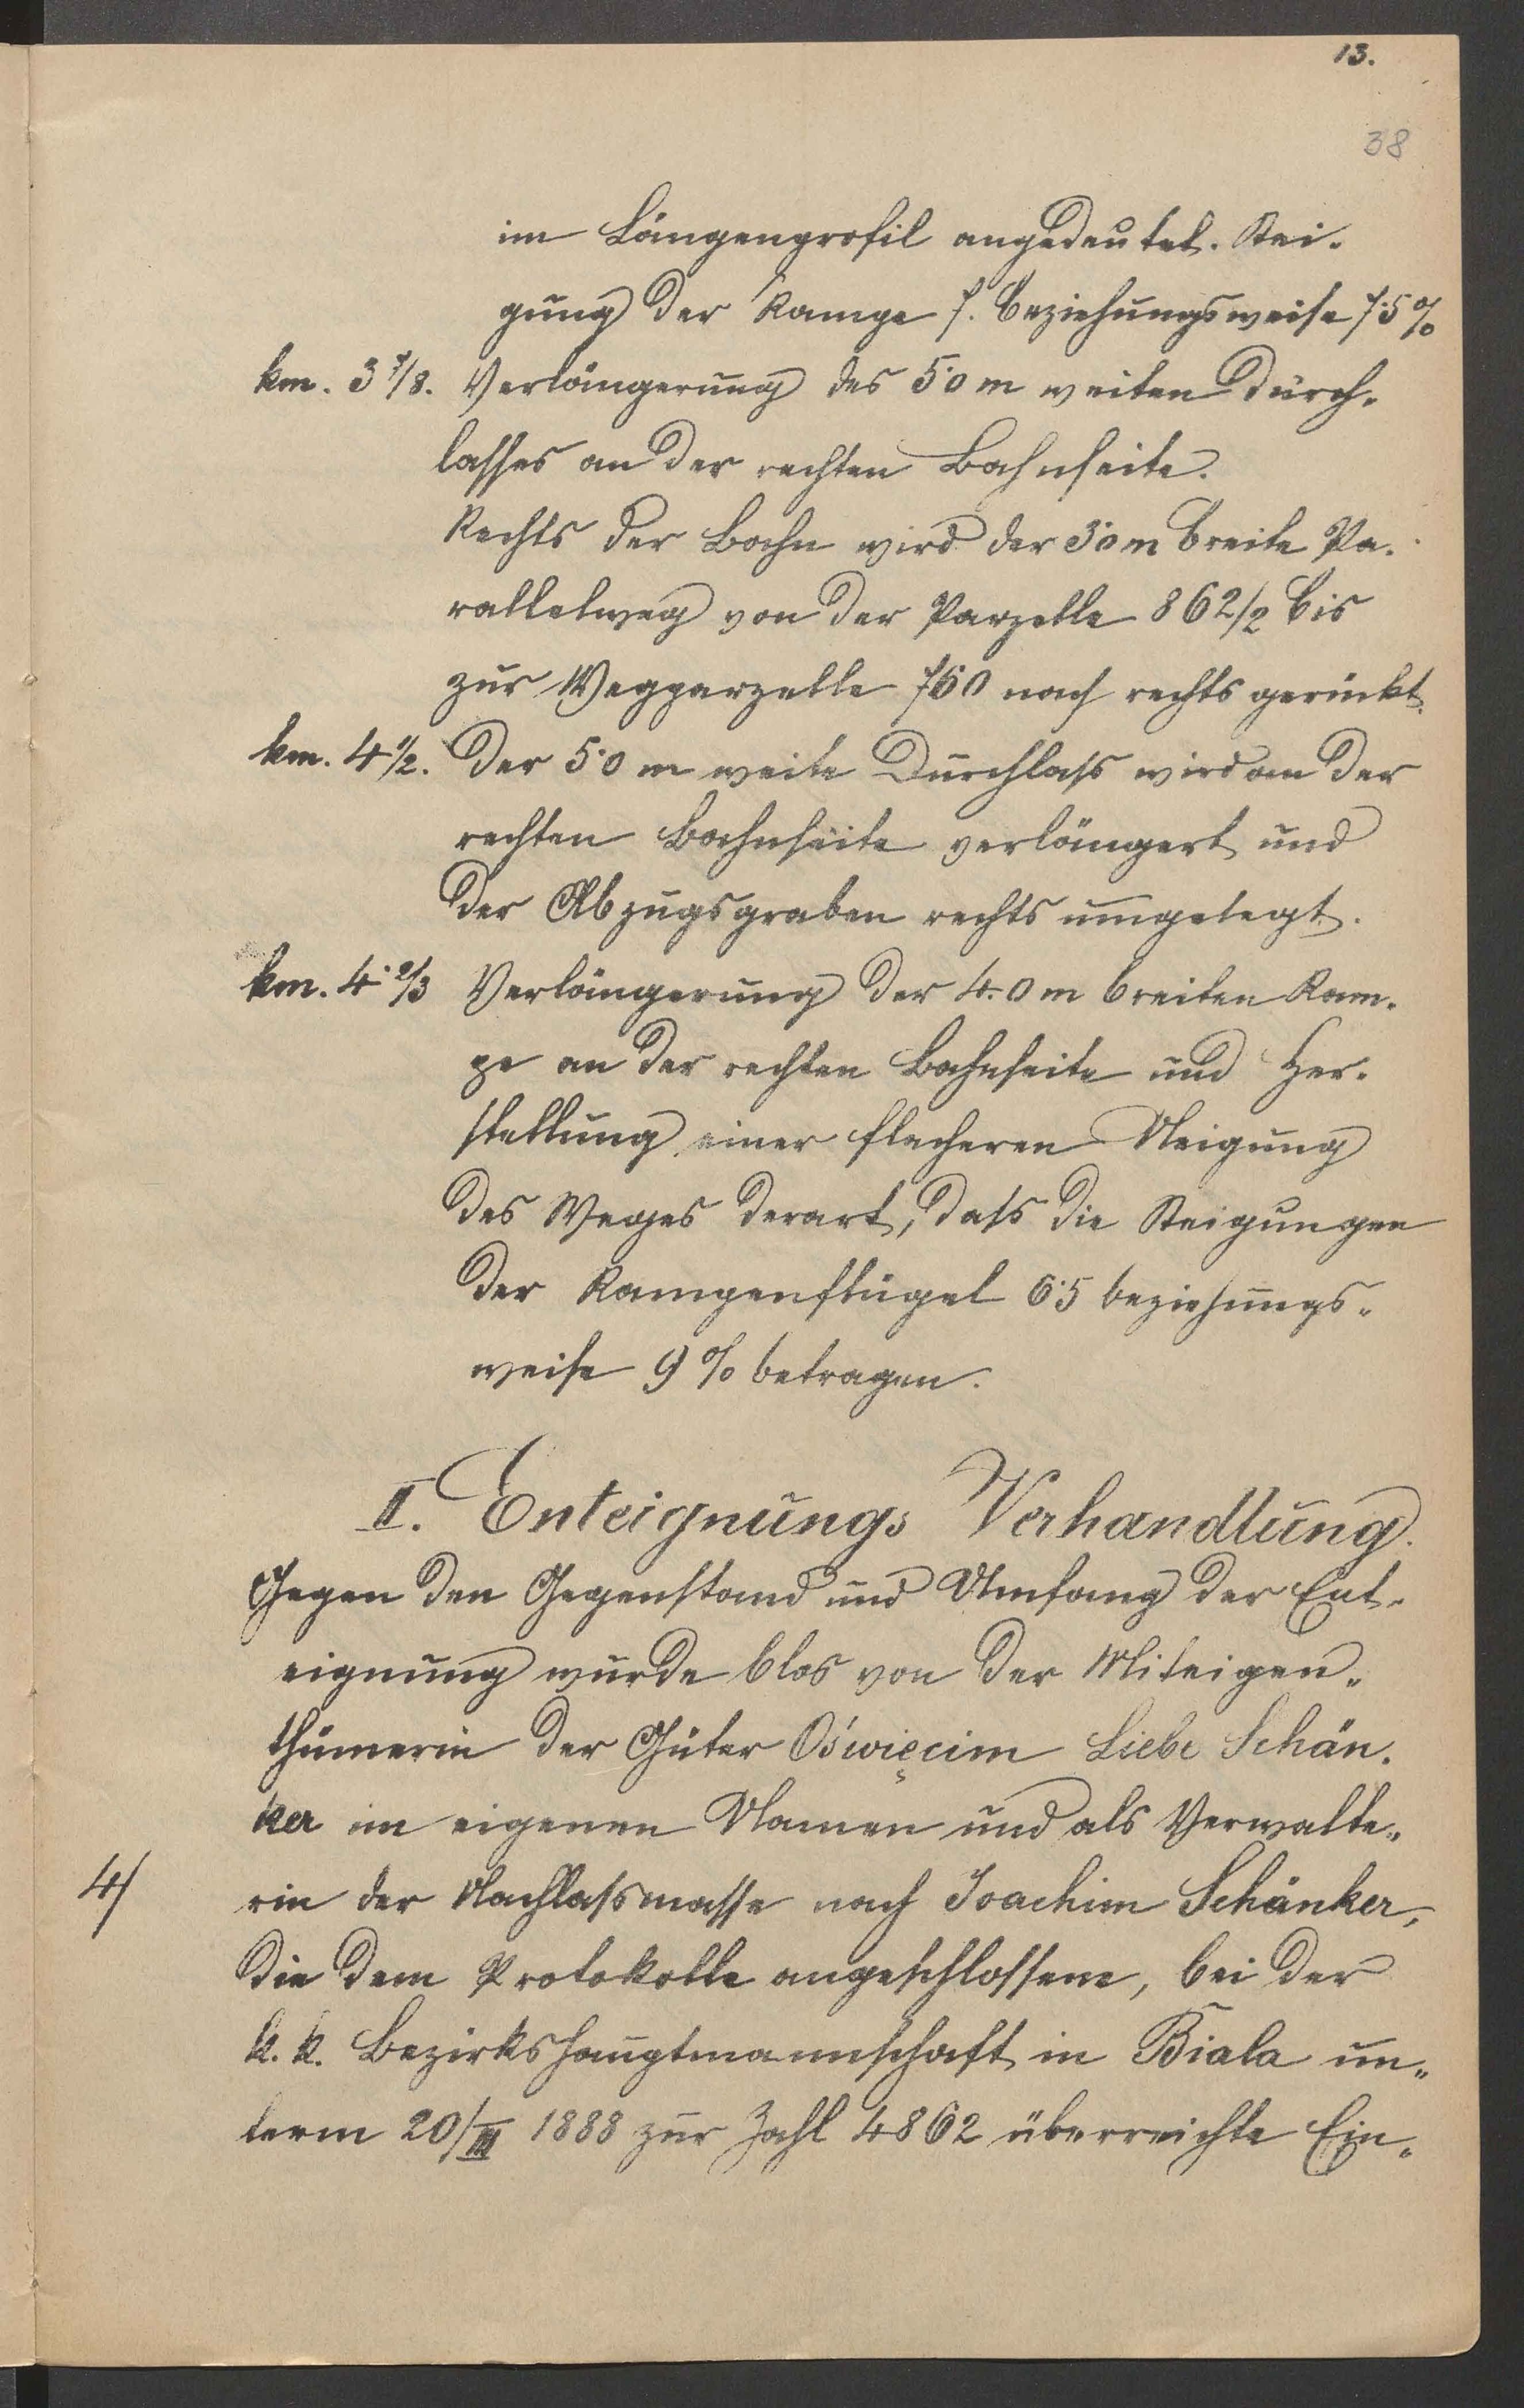 13.
38
im Längenprofil angedeutet. Stei-
gung der Rampe 7. beziehungsweise 7·5%
km. 3 7/8. Verlängerung des 5·0 m weiten Durch-
lasses an der rechten Bahnseite.
Rechts der Bahn wird der 3·0 m breite Pa-
rallelweg von der Parzelle 862/2 bis
zur Wegparzelle 760 nach rechts gerückt.
km. 4 1/2. Der 5·0 m weite Durchlaß wird an der
rechten Bahnseite verlängert und
der Abzugsgraben rechts umgelegt.
km. 4 2/3 Verlängerung der 4.0 m breiten Ram-
pe an der rechten Bahnseite und Her-
stellung einer flacheren Neigung
des Weges derart, daß die Steigungen
der Rampenflügel 6·5 beziehungs-
weise 9% betragen.
II. Enteignungs Verhandlung.
Gegen den Gegenstand und Umfang der Ent-
eignung wurde blos von der Miteigen-
thümerin der Güter Oświęcim Liebe Schän-
ker im eigenen Namen und als Verwalte-
4/ rin der Nachlaßmasse nach Joachim Schänker,
die dem Protokolle angeschlossene, bei der
k. k. Bezirkshauptmannschaft in Biala un-
term 20/III 1888 zur Zahl 4862 überreichte Ein-